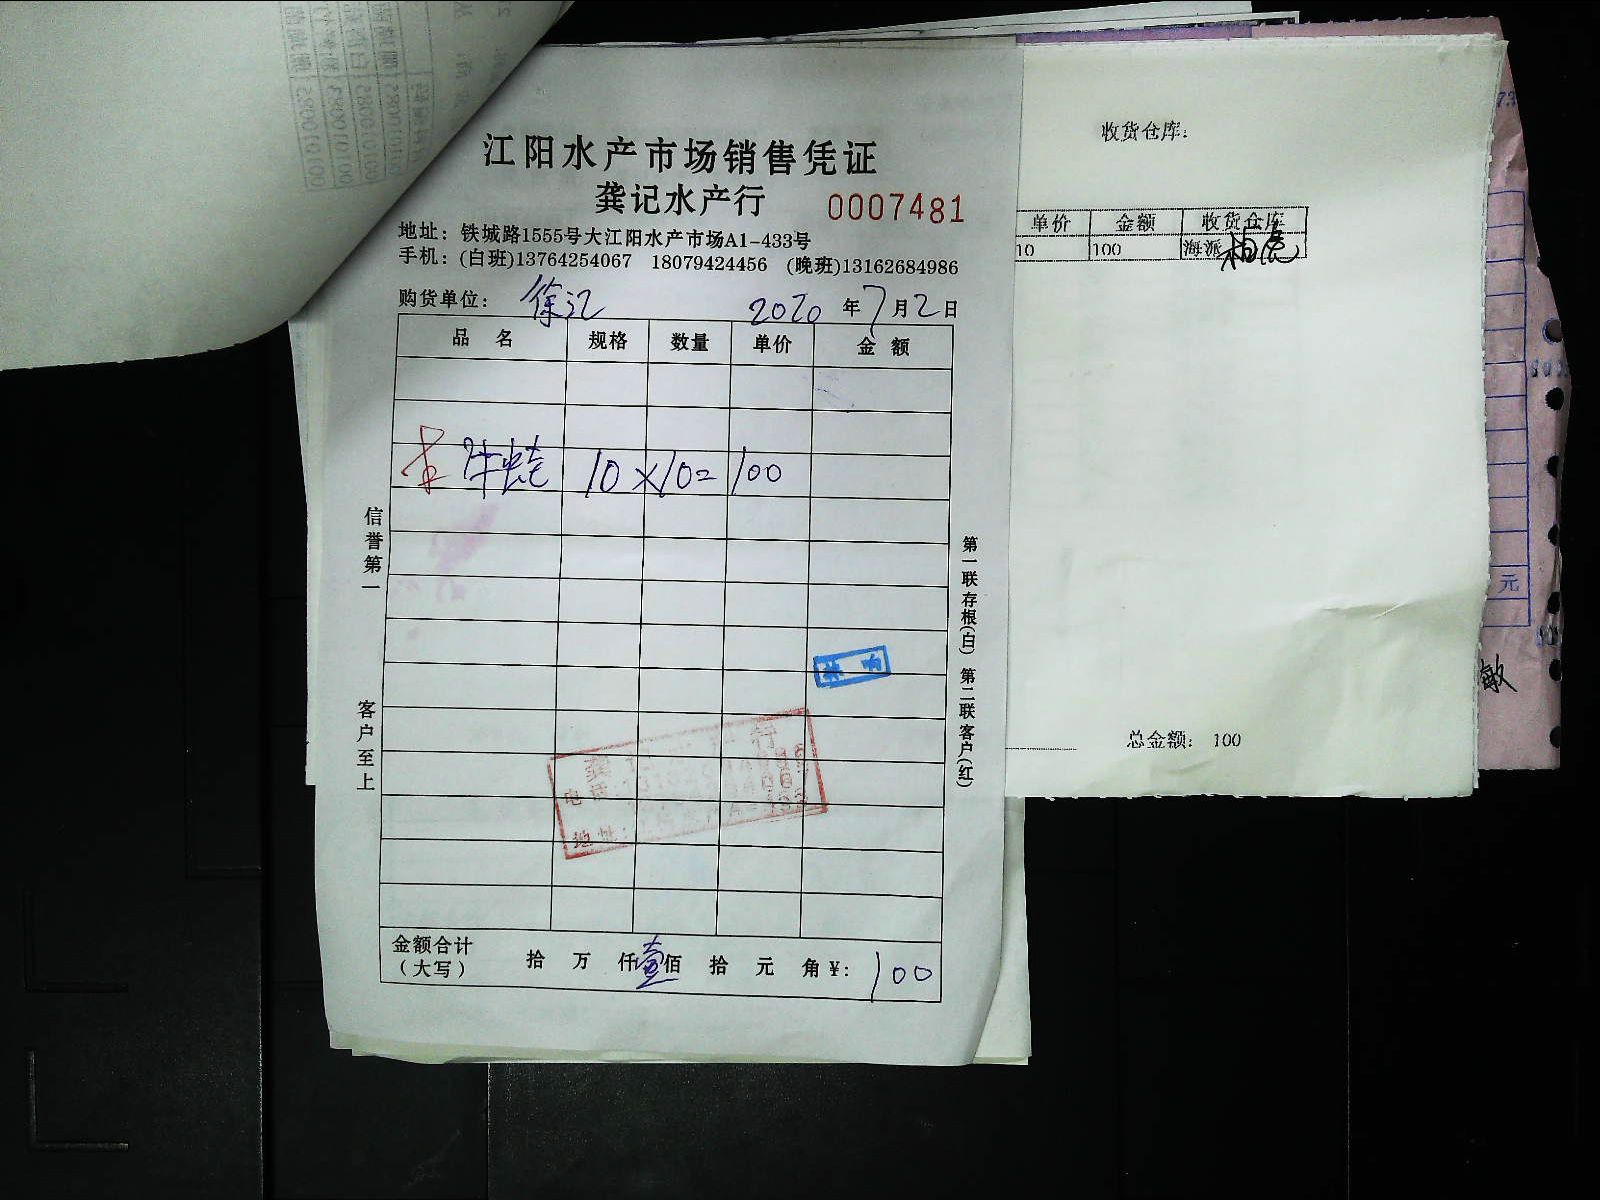 江阳水产市场销售凭证
龚记水产行 0007481
地址：铁城路1555号大江阳水产市场A1-433号
手机：(白班)13764254067 18079424456 (晚班)13162684986
购货单位：徐汇 2020年7月2日
品名 规格 数量 单价 金额
牛蛙 10×10=100
金额合计
（大写） 拾 万 仟壹佰 拾 元 角¥：100
信誉第一
客户至上
第一联存根(白) 第二联客户(红)
电话：
地址：
收货仓库：
单价 金额 收货仓库
10 100 海派
总金额： 100
元
敏